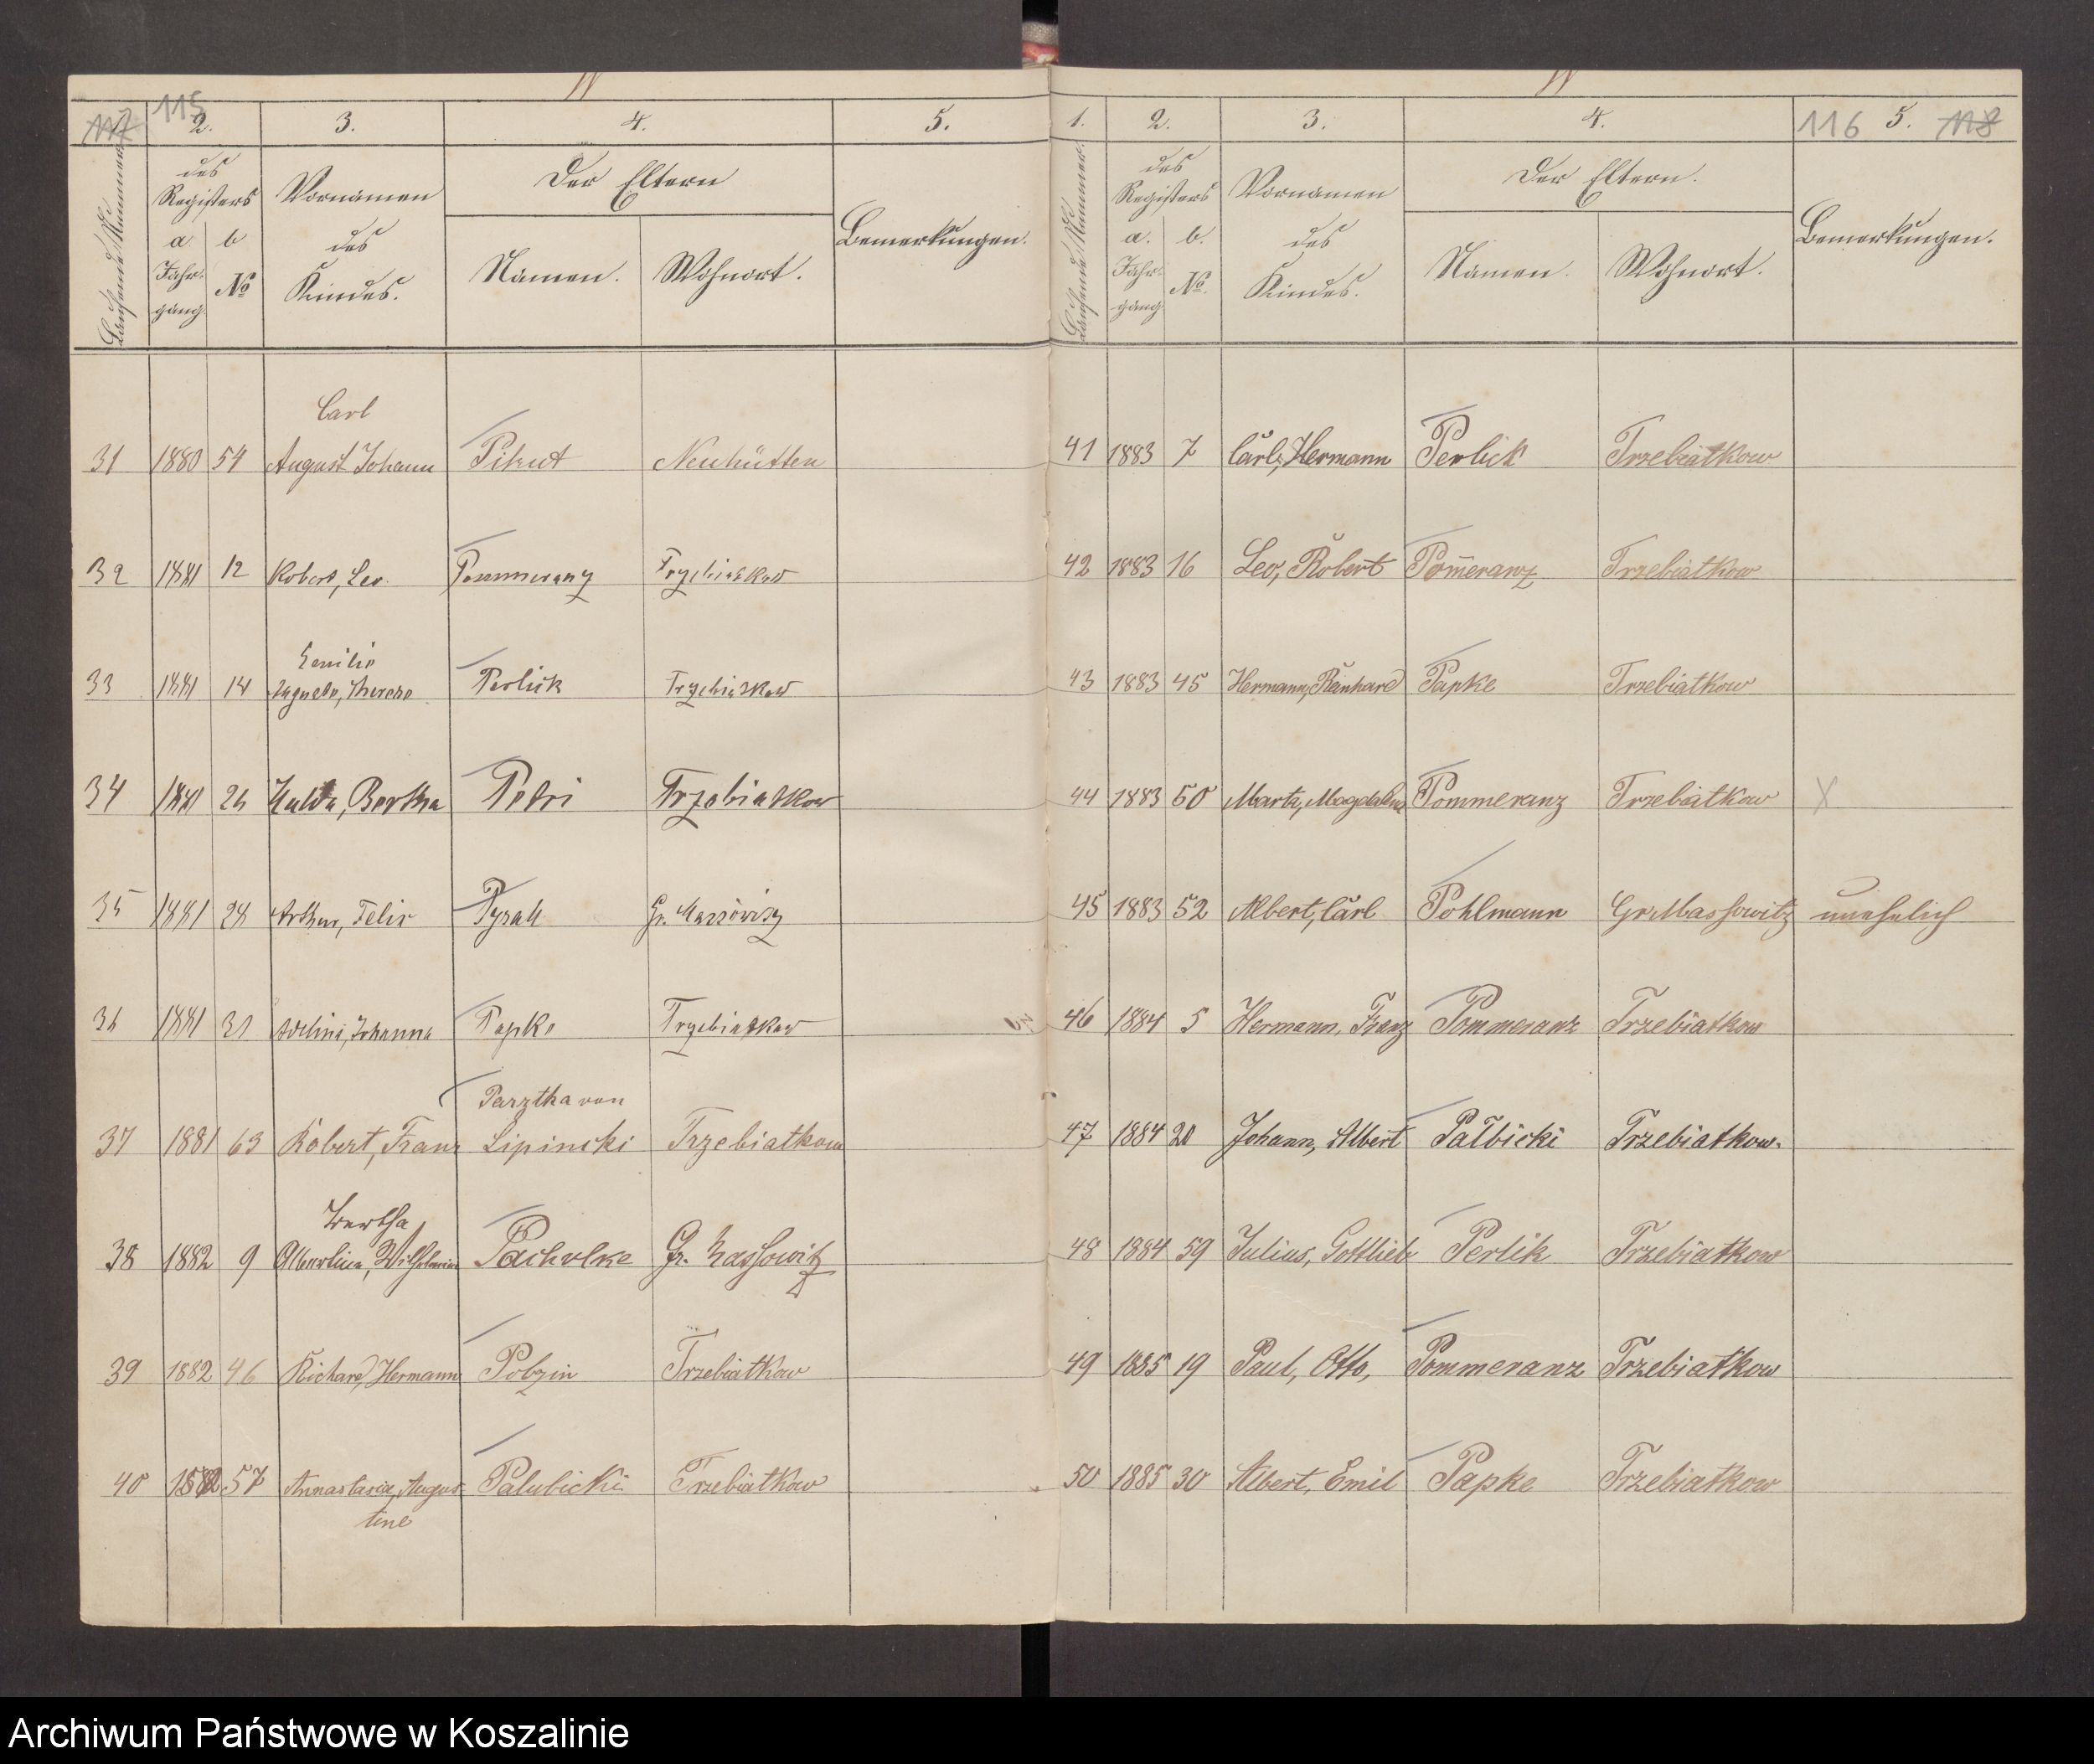 115
117 2. 3. 4. 5.
Laufende Nummer
des Registers Vornamen des Kindes. Der Eltern Bemerkungen.
a b
Jahrgang № Namen. Wohnort.
Carl
31 1880 54 August Johann Pikut Neuhütten
32 1881 12 Robert, Leo Pommeranz Trzebiatkow
Emilie
33 1881 14 Auguste, Therese Perlick Trzebiatkow
34 1881 24 Hulda, Bertha Petri Trzebiatkow
35 1881 28 Arthur, Felix Gr. Massowitz
36 1881 31 Adeline, Johanna Papke Trzebiatkow
Parztka von
37 1881 63 Robert, Franz Lipinski Trzebiatkow
Bertha
38 1882 9 Albertine, Wilhelmine Pacholke Gr. Massowitz
39 1882 46 Richard, Hermann Pobzin Trzebiatkow
40 1882 57 Annastasia, Augus- Palubicki Trzebiatkow
tine
1. 2. 3. 4. 116 5. 118
Laufende Nummer.
des Registers Vornamen des Kindes. Der Eltern. Bemerkungen.
a. b.
Jahrgang №. Namen. Wohnort.
41 1883 7 Carl, Hermann Perlick Trzebiatkow
42 1883 16 Leo, Robert Pom̄eranz Trzebiatkow
43 1883 45 Hermann, Reinhard Papke Trzebiatkow
44 1883 50 Marta, Magdalena Pommeranz Trzebiatkow X
45 1883 52 Albert, Carl Pohlmann Gr. Massowitz unehelich
46 1884 5 Hermann, Franz Pommeranz Trzebiatkow
47 1884 20 Johann, Albert Palbicki Trzebiatkow.
48 1884 59 Julius, Gottlieb Perlik Trzebiatkow
49 1885 19 Paul, Otto, Pommeranz Trzebiatkow
50 1885 30 Albert, Emil Papke Trzebiatkow
Archiwum Państwowe w Koszalinie